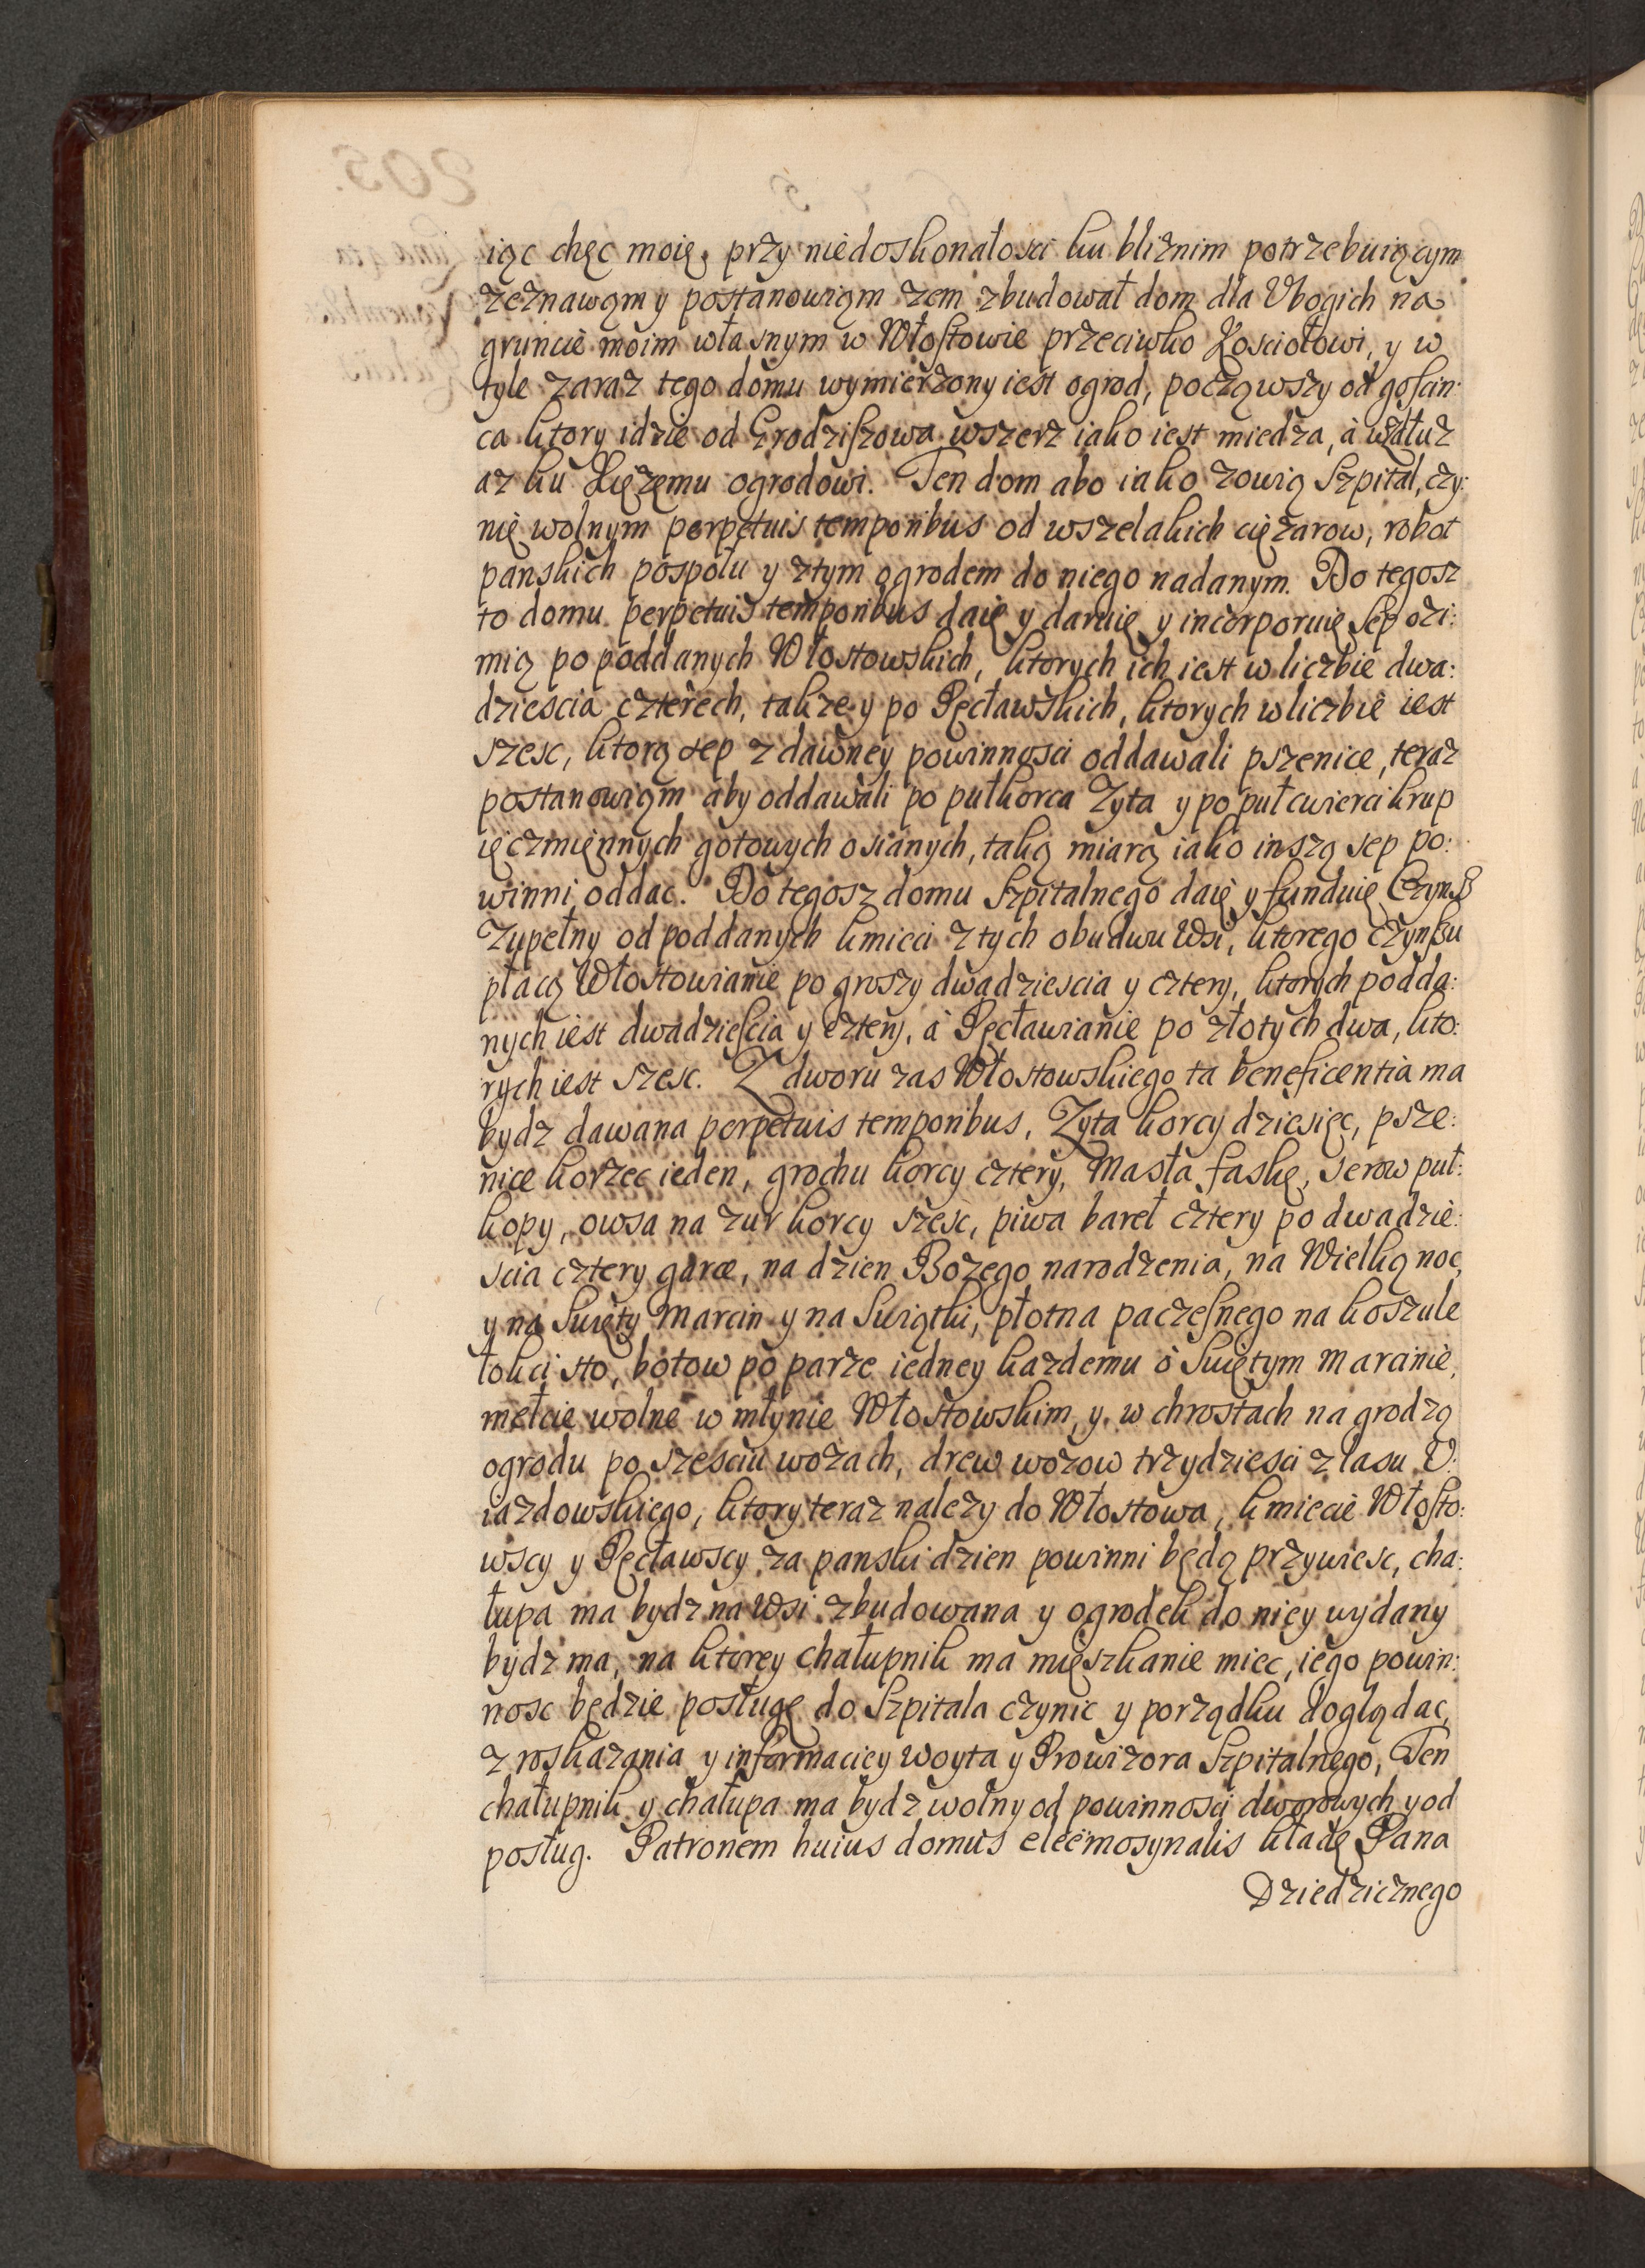 iąc chęc moię przy niedoskonałosci ku bliznim potrzebuiącym
zeznawąm y postanowiąm zem zbudował dom dla Vbogich na
gruncie moim własnym w Włostowie przeciwko Kosciołowi, y w
tyle zaraz tego domu wymierzony iest ogrod, począwszy od goscin:
ca ktory idzie od Grodziszowa wszerz iako iest miedza, à wzdłuz
az ku Xiężemu ogrodowi. Ten dom abo iako zowią Szpital, czy:
nię wolnym perpetuis temporibus od wszelakich ciężarow, robot
panskich pospołu y ztym ogrodem do niego nadanym. Do tegosz
to domu perpetuis temporibus daię y daruię y incorporuię sep ozi:
mią po poddanych Włostowskich, ktorych ich iest w liczbie dwa:
dziescia czterech, takze y po Pęcławskich, ktorych w liczbie iest
szesc, ktorą sep zdawney powinnosci oddawali pszenice, teraz
postanowiąm aby oddawali po pułkorca Zyta y po puł cwierci krup
ięczmiennych gotowych osianych, taką miarą iako inszą sep po:
winni oddac. Do tegosz domu Szpitalnego daię y funduię Czynsz
Zupełny od poddanych kmieci z tych obudwu Wsi, ktorego czynszu
płacą Włostowianie po groszy dwadziescia y cztery, ktorych podda:
nych iest dwadziescia y cztery, à Pęcławianie po złotych dwa, kto:
rych iest szesc. Z dworu zas Włostowskiego ta beneficentia ma
bydz dawana perpetuis temporibus, Zyta korcy dziesięc, psze:
nice korzec ieden, grochu korcy cztery, Masła faskę, serow puł:
kopy, owsa na zur korcy szesc, piwa bareł cztery po dwadzie:
scia cztery garce, na dzien Bozego narodzenia, na Wielką noc,
y na Swięty Marcin y na Swiątki, płotna paczesnego na koszule
łokci sto, botow po parze iedney kazdemu o Swiętym Marcinie,
mełcie wolne w młynie Włostowskim, y w chrostach na grodzą
ogrodu po szesciu wozach, drew wozow trzydziesci z lasu V:
iazdowskiego, ktory teraz nalezy do Włostowa, kmiecie Włosto:
wscy y Pęcławscy za panski dzien powinni będą przywiesc, cha:
łupa ma bydz na Wsi zbudowana y ogrodek do niey wydany
bydz ma, na ktorey chałupnik ma mięszkanie miec, iego powin:
nosc będzie posługę do Szpitala czynic y porządku doglądac,
z roskazania y informaciey Woyta y Prowizora Szpitalnego, Ten
chałupnik y chałupa ma bydz wolny od powinnosci dworowych y od
posług. Patronem huius domus eleëmosynalis kładę Pana
Dziedzicznego